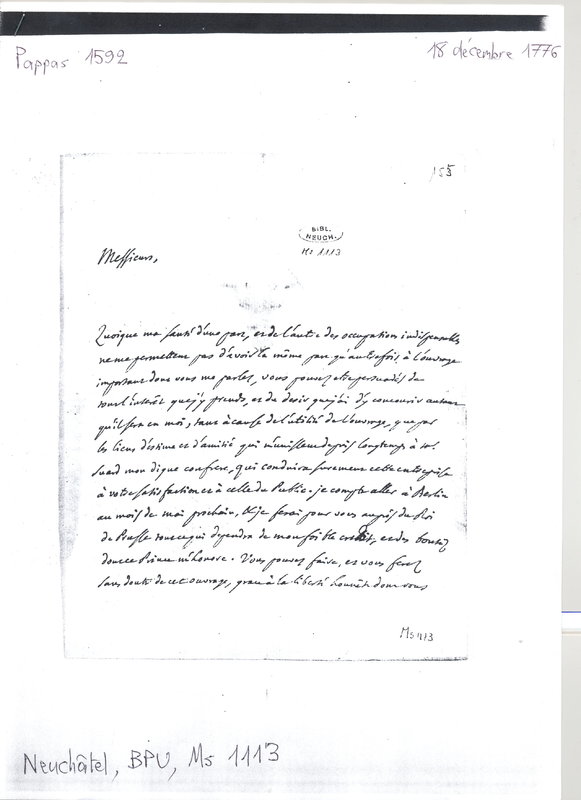 Pappas 1592
18 décembre 1776
155
BIBL.
NEUCH.
Ms 1113
Messieurs,
Quoique ma santé d'une part, et de l'autre des occupations indispensables
ne me permettent pas d'avoir la même part qu'autrefois à l'ouvrage
important dont vous me parlez, vous pouvez être persuadés de
tout l'intérêt que j'y prends, et du desir que j'ai d'y concourir autant
qu'il sera en moi, tant à cause de l'utilité de l'ouvrage, que par
les liens d'estime et d'amitié qui m'unissent depuis longtemps à M.
Suard mon digne confrere, qui conduira surement cette entreprise
à votre satisfaction et à celle du Public. je compte aller à Berlin
au mois de mai prochain, & je ferai pour vous auprès du Roi
de Prusse tout ce qui dépendra de mon foible credit, et des bontés
dont ce Prince m'honore. Vous pouvez faire, et vous ferez
sans doute de cet ouvrage, grace à la liberté honnête dont vous
Ms 1113
Neuchâtel, BPU, Ms 1113